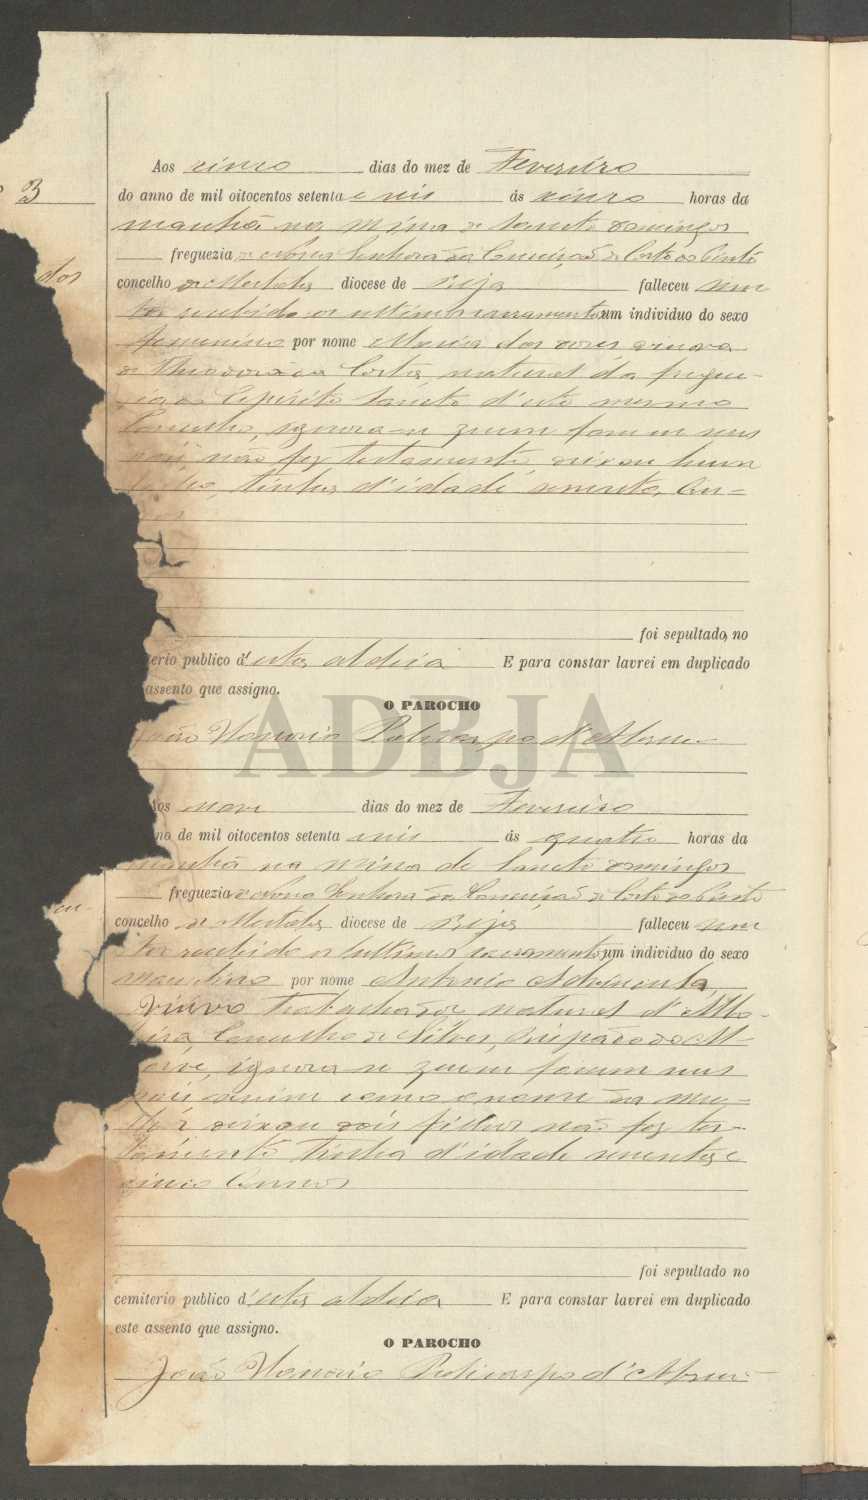 Aos cinco dias do mez de Fevereiro
3
do anno de mil oitocentos setenta e seis ás cinco horas da
manhã na mina de Sancto Domingos
freguezia de Nossa Senhora da Conceição de Corte do Pinto
dos
concelho de Mertola diocese de Beja falleceu sem
ter recebido os ultimos sacramentos um individuo do sexo
feminino por nome Maria das Dores viuva
de Theodoro da Costa, natural da fregue-
Espirito Sancto d'este mesmo
Concelho, ignora-se quem foram seus
não fez testamento, deixou hum
tinha d'idade secenta, an-
foi sepultado, no
terio publico d'esta aldeia E para constar lavrei em duplicado
assento que assigno.
O PAROCHO
João Honorio Policarpo d'Abreu
ADBJA
Aos nove dias do mez de Fevereiro
no de mil oitocentos setenta e seis ás quatro horas da
manhã na mina de Sancto Domingos
freguezia de Nossa Senhora da Conceição de Corte do Pinto
concelho de Mertola diocese de Beja falleceu sem
ter recebido os ultimos sacramentos um individuo do sexo
masculino por nome Antonio
viuvo trabalhador natural d'
Concelho de Silves,
ignora se quem foram seus
como o nome da mu-
deixou dois filhos não fez tes-
tamento tinha d'idade secenta e
cinco annos
foi sepultado no
cemiterio publico d'esta aldeia E para constar lavrei em duplicado
este assento que assigno.
O PAROCHO
João Honorio Policarpo d'Abreu